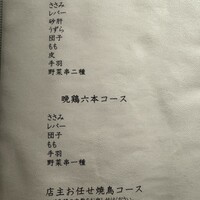 ささみ
レバー
砂肝
うずら
団子
もも
皮
手羽
野菜串二種
晩鶏六本コース
ささみ
レバー
団子
もも
手羽
野菜串一種
店主お任せ焼鳥コース